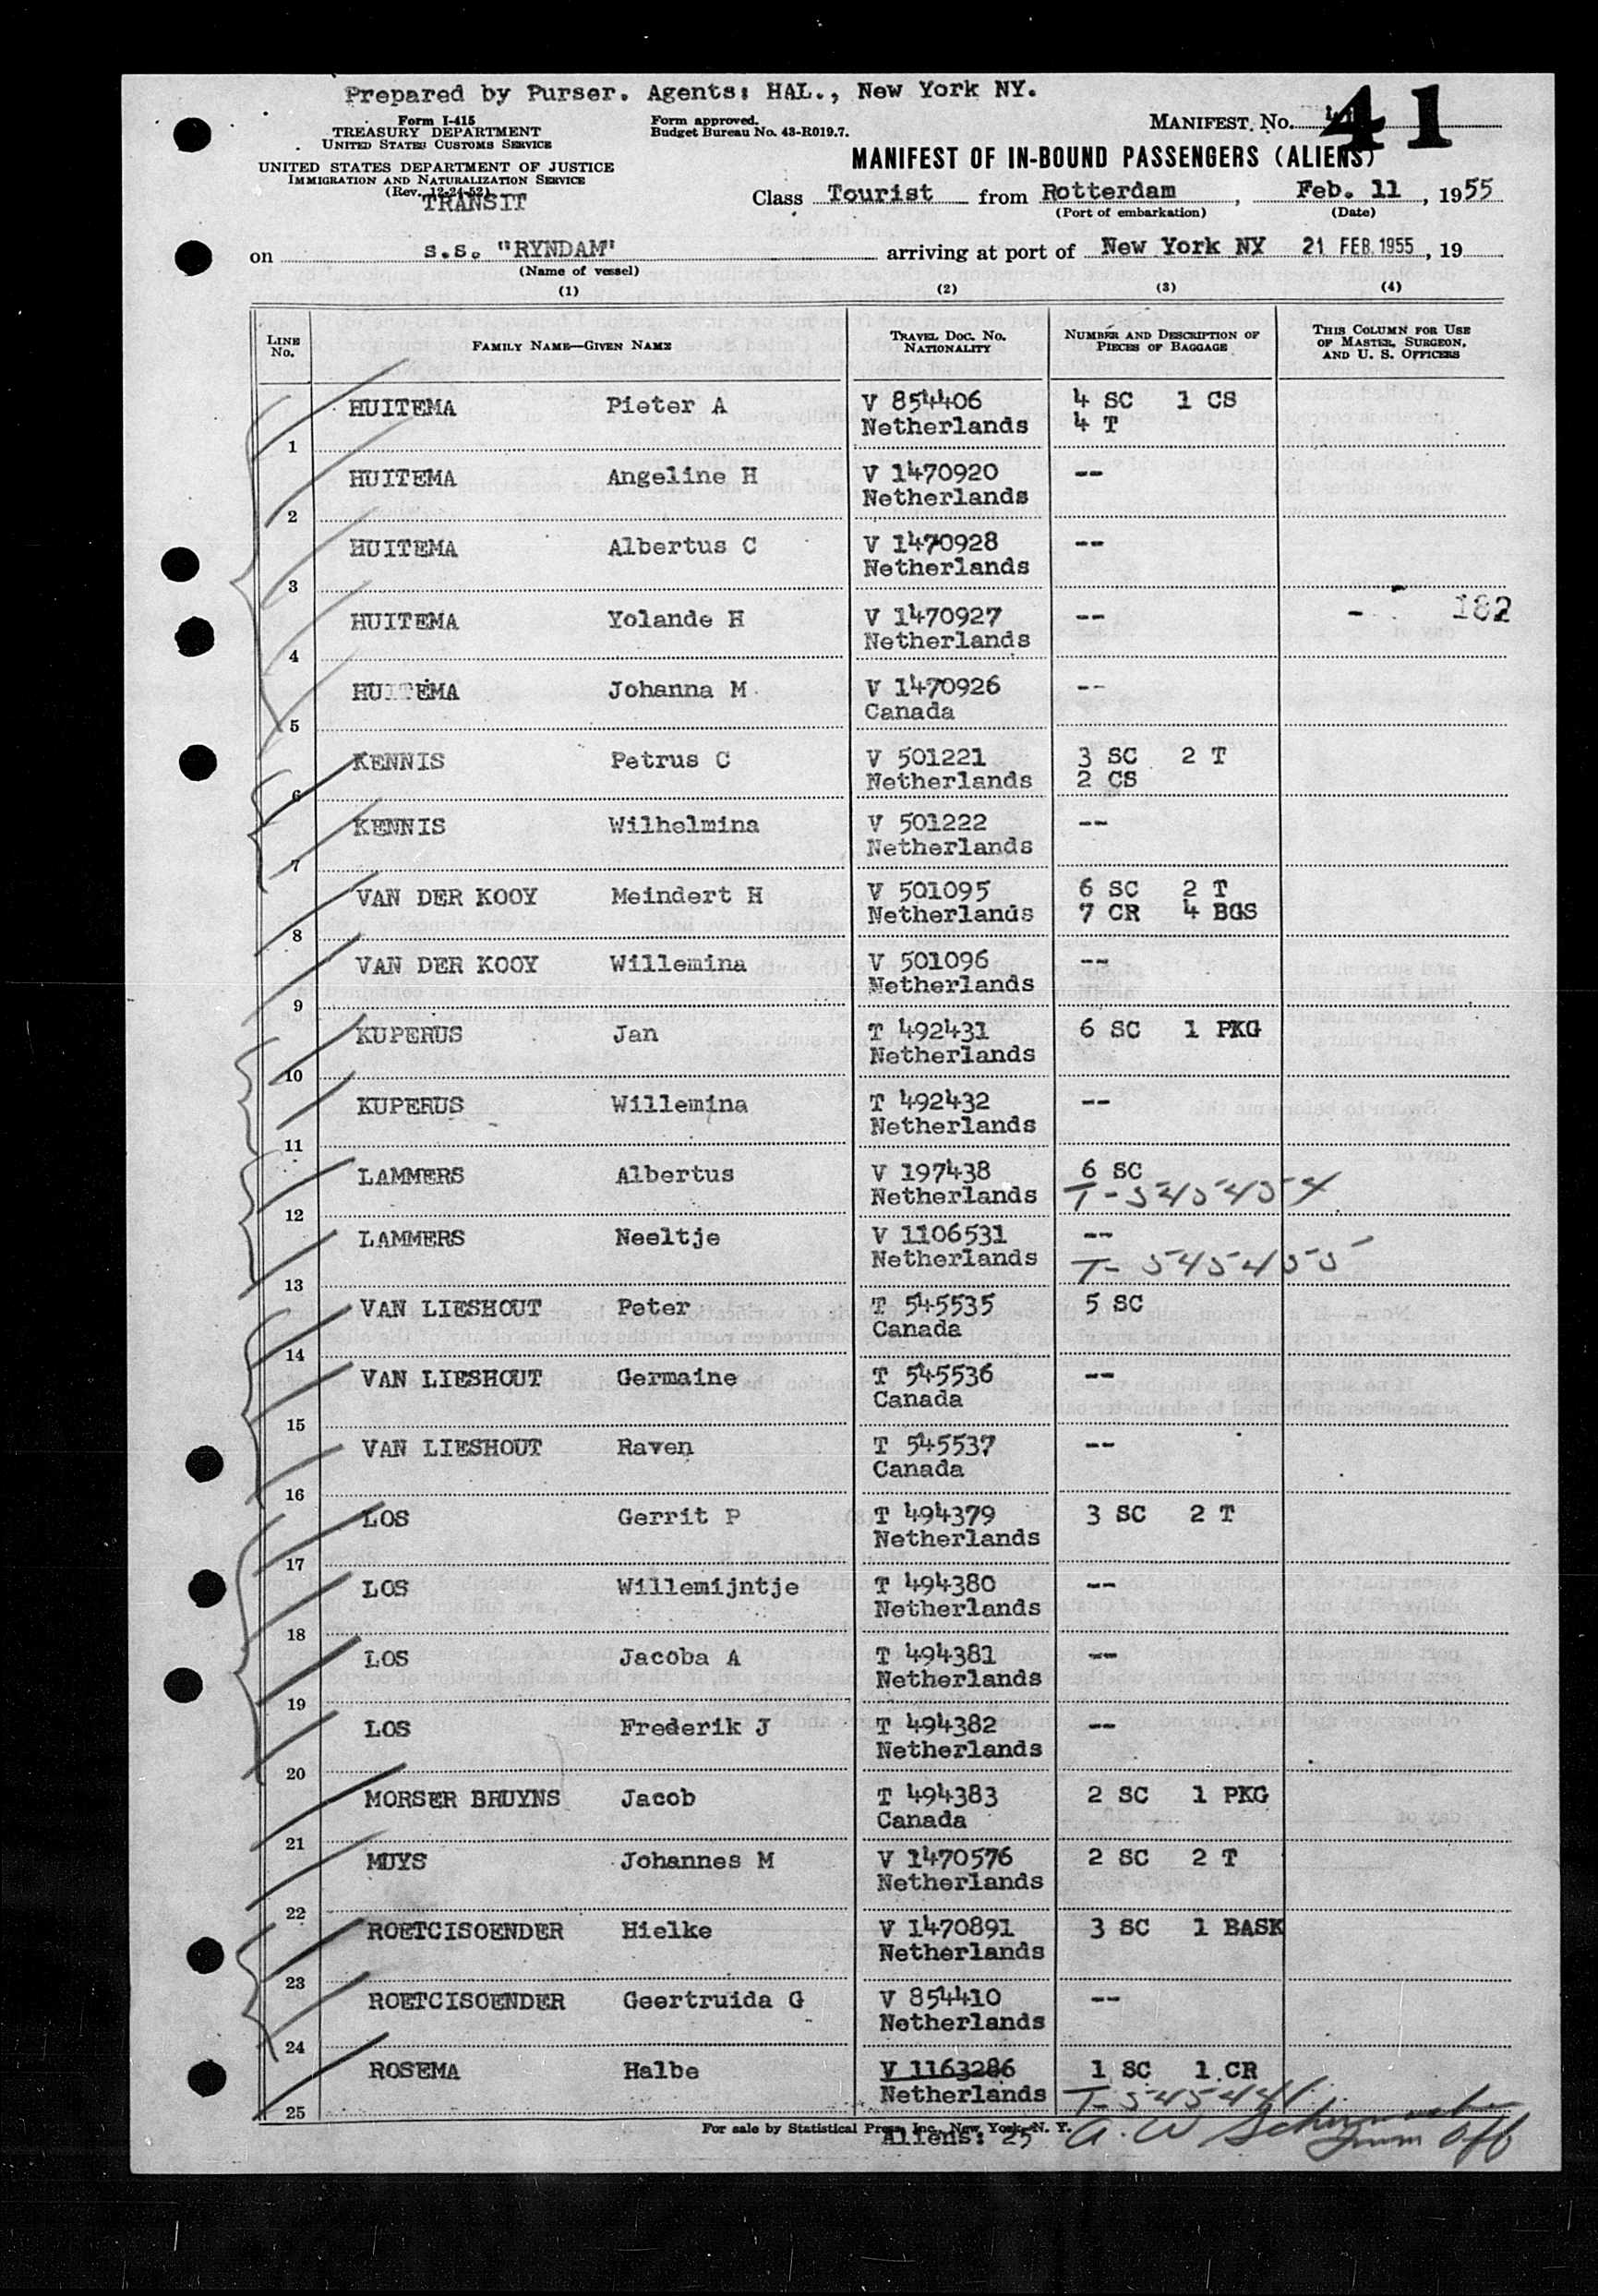 Prepared by Purser. Agents: HAL., New York NY.
Form I-415
TREASURY DEPARTMENT
UNITED STATES CUSTOMS SERVICE
Form approved.
Budget Bureau No. 43-R019.7.
MANIFEST. No. 41
UNITED STATES DEPARTMENT OF JUSTICE
IMMIGRATION AND NATURALIZATION SERVICE
(Rev. 12-24-52)
TRANSIT
MANIFEST OF IN-BOUND PASSENGERS (ALIENS)
Class Tourist from Rotterdam, Feb. 11, 1955
(Port of embarkation) (Date)
on s.s. "RYNDAM" arriving at port of New York NY 21 FEB. 1955, 19
(Name of vessel)
(1) (2) (3) (4)
LINE No. FAMILY NAME—GIVEN NAME TRAVEL DOC. NO. NATIONALITY NUMBER AND DESCRIPTION OF PIECES OF BAGGAGE THIS COLUMN FOR USE OF MASTER, SURGEON, AND U. S. OFFICERS
HUITEMA Pieter A V 854406 4 SC 1 CS
Netherlands 4 T
1
HUITEMA Angeline H V 1470920 --
Netherlands
2
HUITEMA Albertus C V 1470928 --
Netherlands
3
HUITEMA Yolande H V 1470927 -- - 182
Netherlands
4
HUITEMA Johanna M V 1470926 --
Canada
5
KENNIS Petrus C V 501221 3 SC 2 T
Netherlands 2 CS
6
KENNIS Wilhelmina V 501222 --
Netherlands
7
VAN DER KOOY Meindert H V 501095 6 SC 2 T
Netherlands 7 CR 4 BGS
8
VAN DER KOOY Willemina V 501096 --
Netherlands
9
KUPERUS Jan T 492431 6 SC 1 PKG
Netherlands
10
KUPERUS Willemina T 492432 --
Netherlands
11
LAMMERS Albertus V 197438 6 SC
Netherlands T-545454
12
LAMMERS Neeltje V 1106531 --
Netherlands T-545455
13
VAN LIESHOUT Peter T 545535 5 SC
Canada
14
VAN LIESHOUT Germaine T 545536 --
Canada
15
VAN LIESHOUT Raven T 545537 --
Canada
16
LOS Gerrit P T 494379 3 SC 2 T
Netherlands
17
LOS Willemijntje T 494380 --
Netherlands
18
LOS Jacoba A T 494381 --
Netherlands
19
LOS Frederik J T 494382 --
Netherlands
20
MORSER BRUYNS Jacob T 494383 2 SC 1 PKG
Canada
21
MUYS Johannes M V 1470576 2 SC 2 T
Netherlands
22
ROETCISOENDER Hielke V 1470891 3 SC 1 BASK
Netherlands
23
ROETCISOENDER Geertruida G V 854410 --
Netherlands
24
ROSEMA Halbe V 1163286 1 SC 1 CR
Netherlands T-545441
25
For sale by Statistical Press, Inc., New York, N. Y.
Aliens: 25
A. W
Imm Off